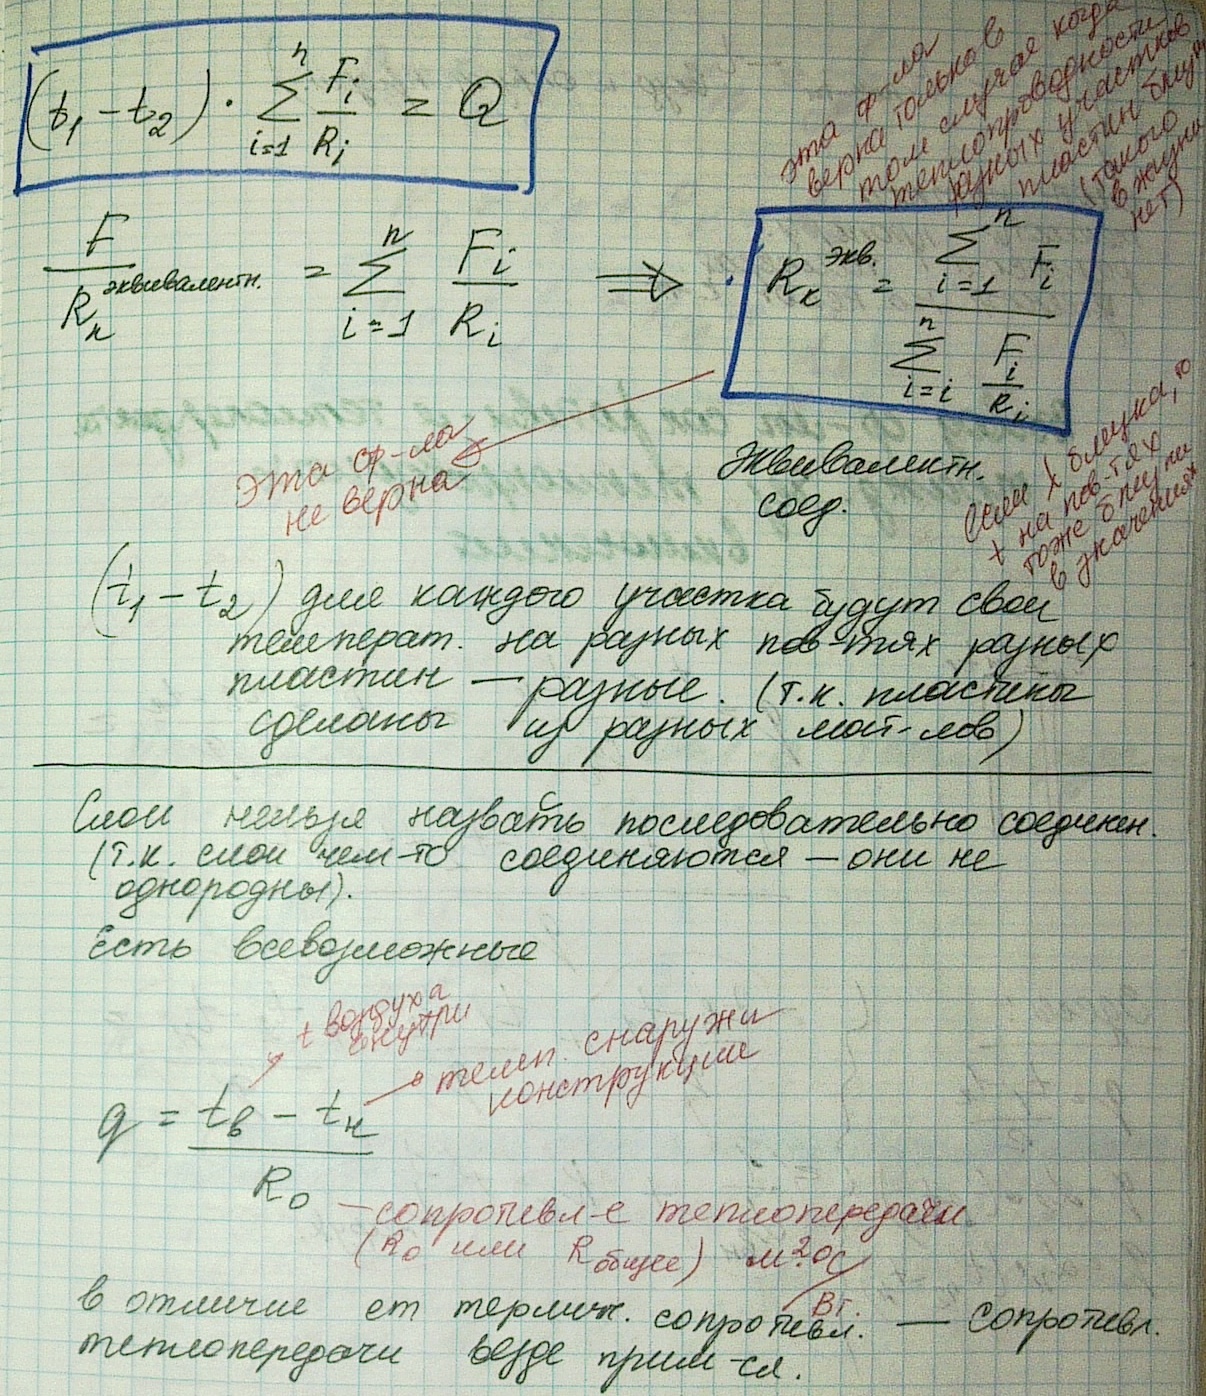 (t₁ – t₂) · ∑ᵢ₌₁ⁿ Fᵢ/Rᵢ = Q
эта ф-ла
верна только в
том случае когда
теплопроводности
разных участков
пластин близки
(такого
в жизни
нет)
F/Rₖ эквивалентн. = ∑ᵢ₌₁ⁿ Fᵢ/Rᵢ ⟹ Rₖ экв. = ∑ᵢ₌₁ⁿ Fᵢ / ∑ᵢ₌ᵢⁿ Fᵢ/Rᵢ
Эта ф-ла
не верна
Эквивалентн.
соед.
если λ близка, то
t на пов-тях
тоже близки
в значениях
(t₁ – t₂) для каждого участка будут свои
температ. на разных пов-тях разных
пластин — разные. (т.к. пластины
сделаны из разных мат-лов)
Слои нельзя назвать последовательно соединен.
(т.к. слои чем-то соединяются — они не
однородны).
Есть всевозможные
t воздуха
внутри
темп. снаружи
конструкции
q = (tв – tн) / R₀
— сопротивл-е теплопередачи
(R₀ или R общее) м²·°C/Вт.
в отличие от термич. сопротивл. — сопротивл.
теплопередачи везде прим-ся.